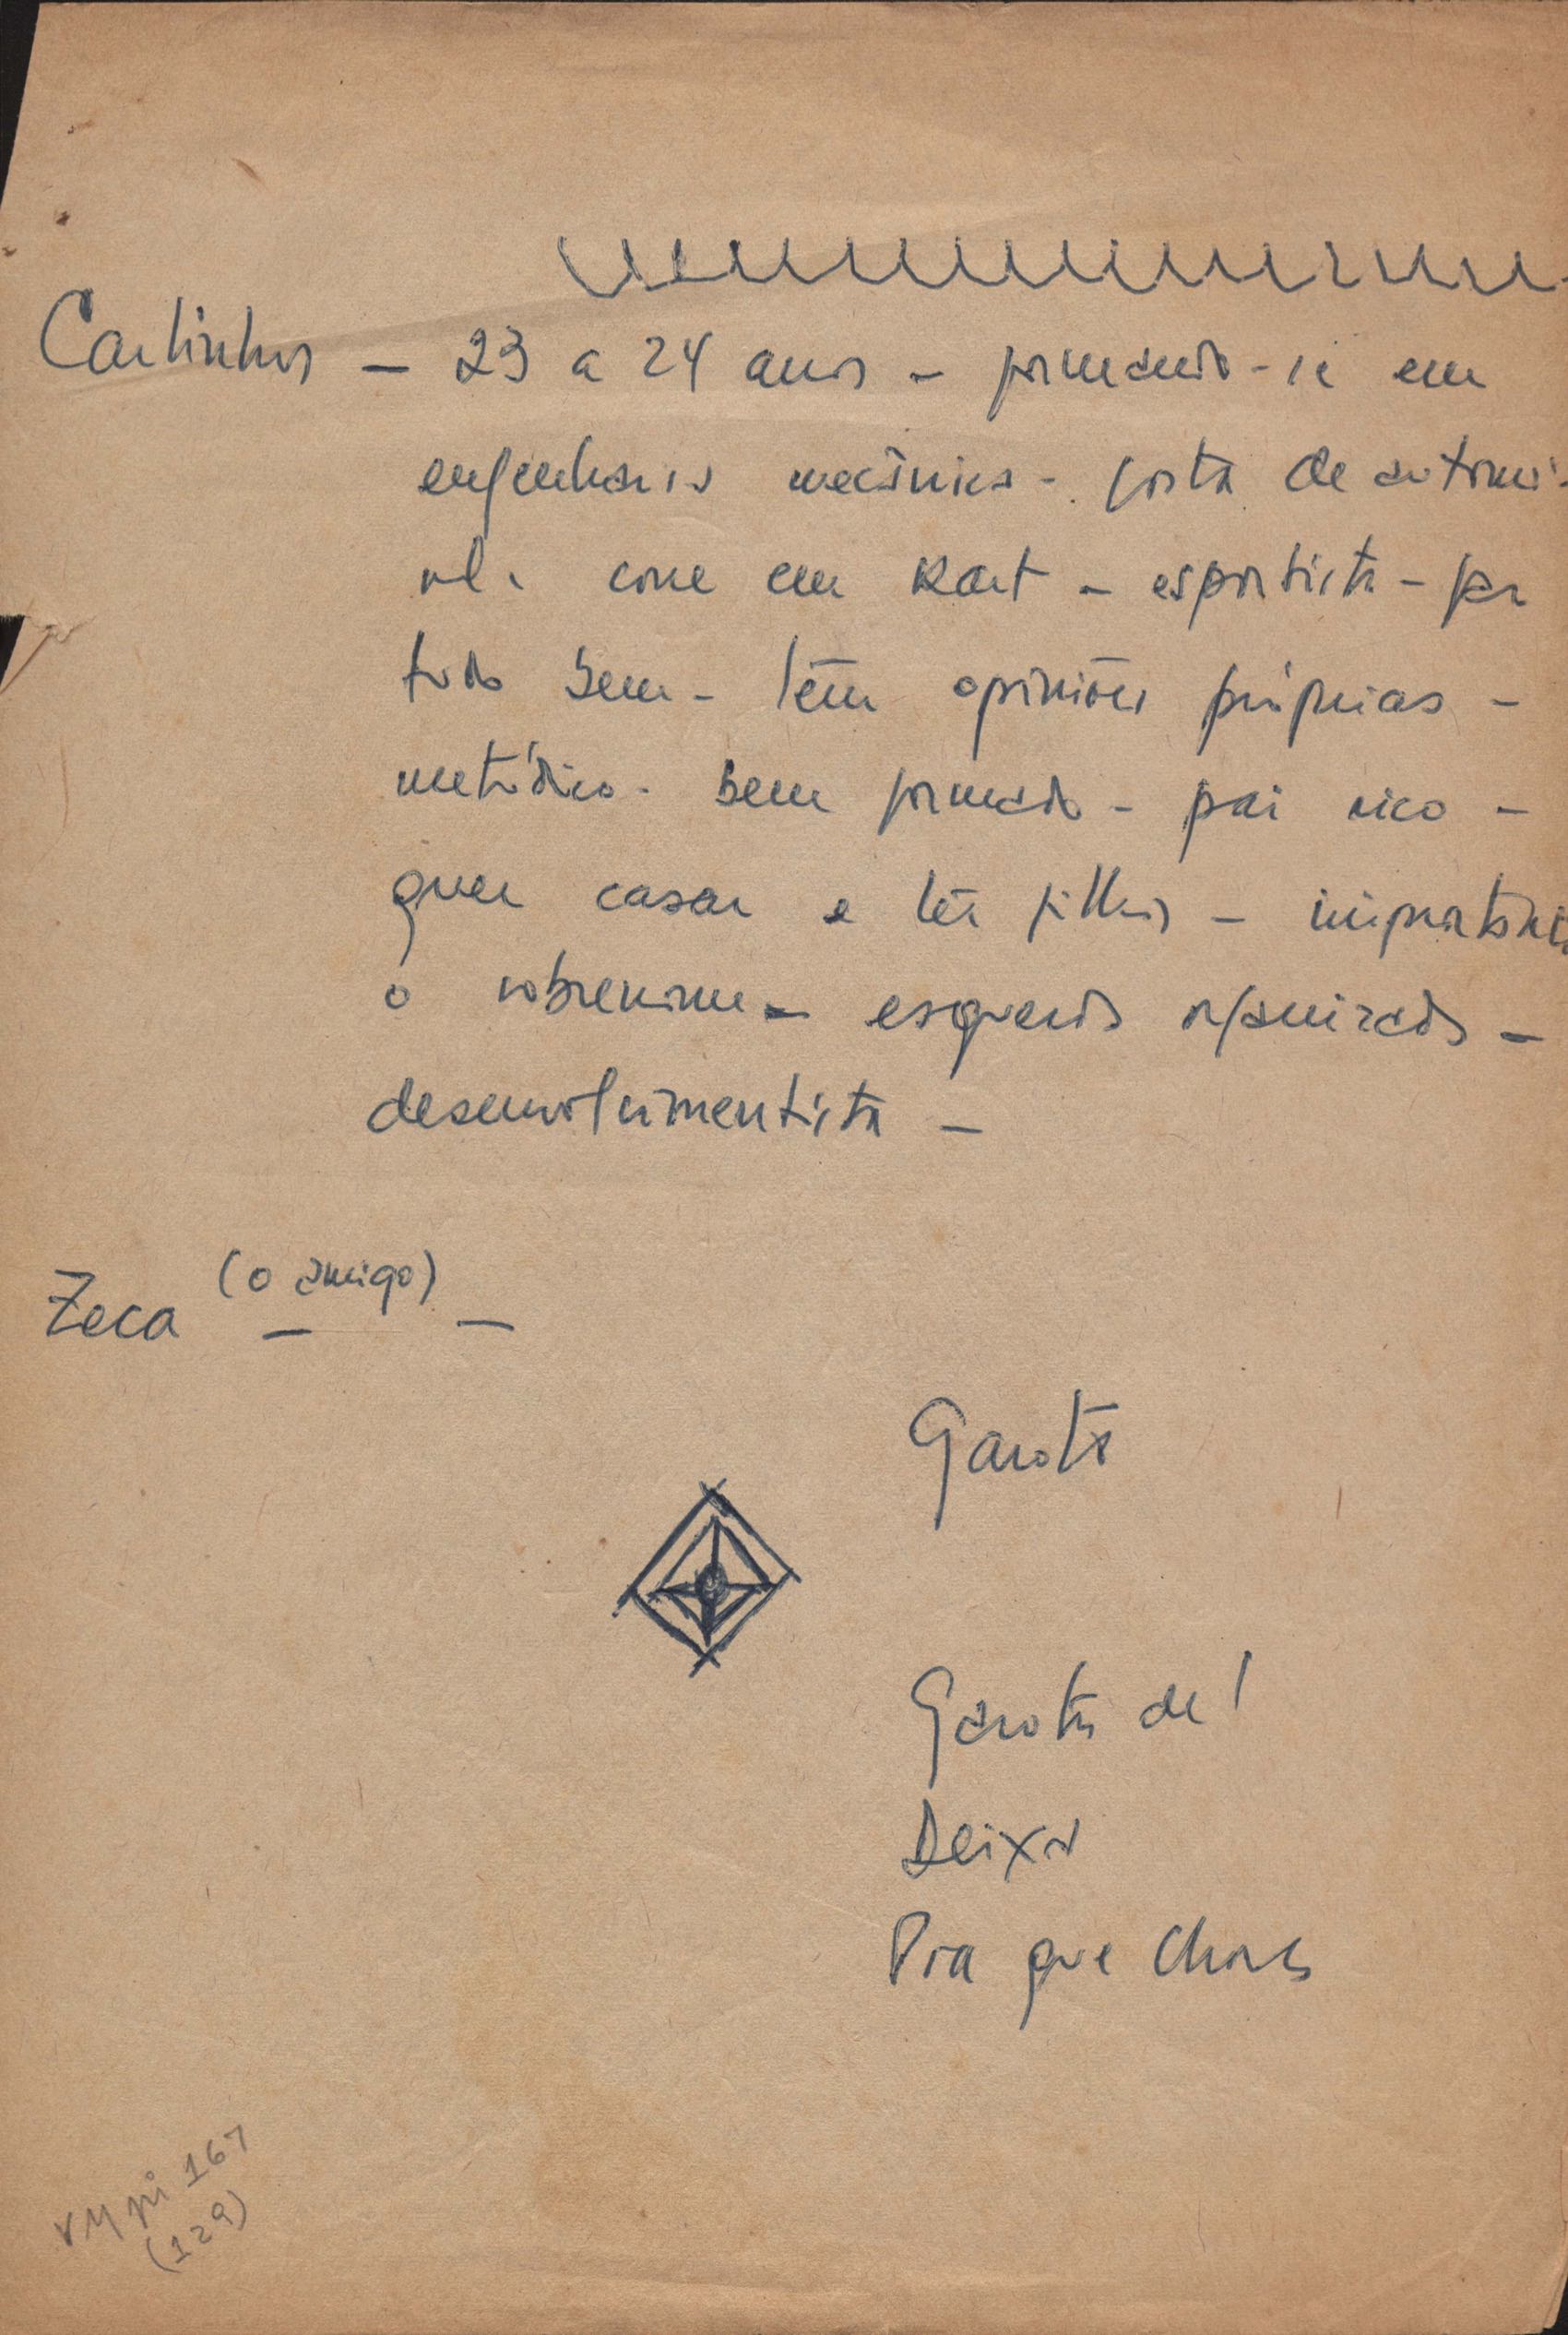 Carlinhos — 23 a 24 anos — formando-se em
engenharia mecânica - gosta de automó-
vel - corre em kart — esportista — faz
tudo bem — têm opiniões próprias —
metódico - bem formado — pai rico —
quer casar e têr filhos — importante
o sobrenome — esquerda organizada —
desenvolvimentista —
Zeca (o amigo) —
Garota
Garota de I
Deixa
Pra que chorar
VM pi 167
(129)